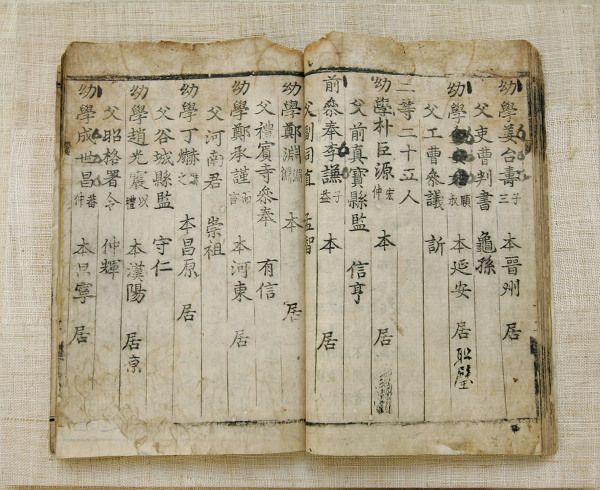 幼學姜台壽 子三 本晉州 居
父吏曹判書 龜孫
幼學 顯叔 本延安 居
父工曹參議 訢
二等二十五人
幼學朴巨源 宏仲 本 居
父前真寶縣監 信亨
前參奉李謙 子益 本 居
父副司直 孟智
幼學鄭淵 本 居
父禮賓寺參奉 有信
幼學鄭承謹 本河東 居
父河南君 崇祖
幼學丁 之 本昌原 居
父谷城縣監 守仁
幼學趙光 以禮 本漢陽 居京
父昭格署令 仲輝
幼學成世昌 蕃仲 本昌寧 居